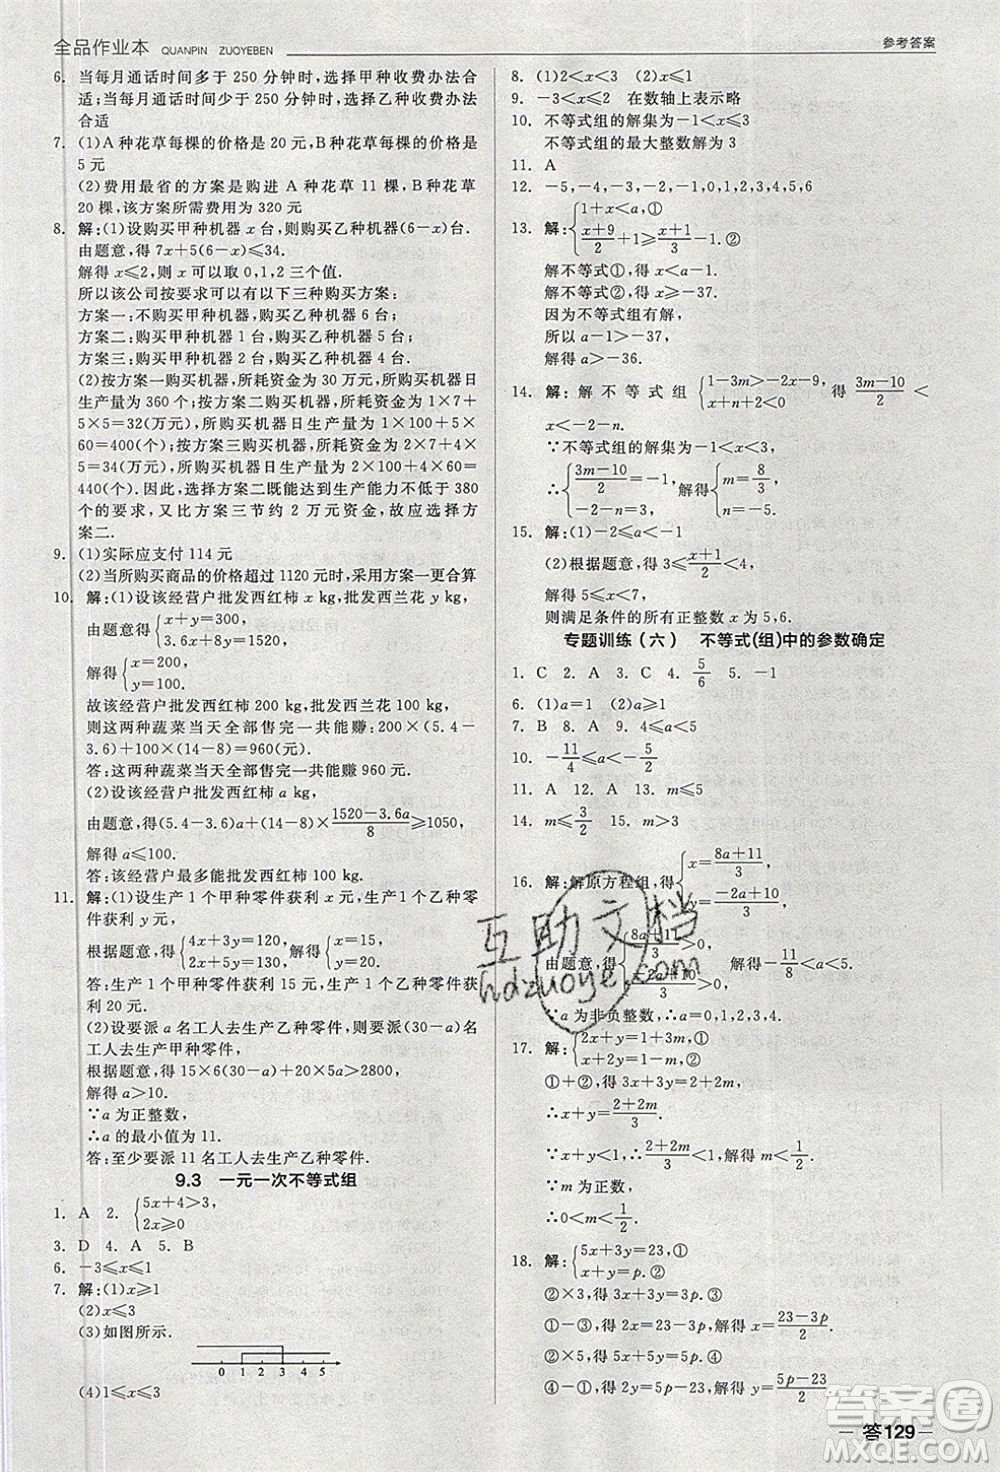 全品作业本 QUANPIN ZUOYEBEN
参考答案
6. 当每月通话时间多于 250 分钟时,选择甲种收费办法合
适;当每月通话时间少于 250 分钟时,选择乙种收费办法
合适
7. (1)A 种花草每棵的价格是 20 元,B 种花草每棵的价格是
5 元
(2)费用最省的方案是购进 A 种花草 11 棵,B 种花草
20 棵,该方案所需费用为 320 元
8. 解:(1)设购买甲种机器 x 台,则购买乙种机器(6-x)台.
由题意,得 7x+5(6-x)≤34.
解得 x≤2,则 x 可以取 0,1,2 三个值.
所以该公司按要求可以有以下三种购买方案:
方案一:不购买甲种机器,购买乙种机器 6 台;
方案二:购买甲种机器 1 台,购买乙种机器 5 台;
方案三:购买甲种机器 2 台,购买乙种机器 4 台.
(2)按方案一购买机器,所耗资金为 30 万元,机器日
生产量为 360 个;按方案二购买机器,所耗资金为 1×7+
5×5=32(万元),所购买机器日生产量为 1×100+5×
60=400(个);按方案三购买机器,所耗资金为 2×7+4×
5=34(万元),所购买机器日生产量为 2×100+4×60=
440(个).因此,选择方案二既能达到生产能力不低于 380
个的要求,又比方案三节约 2 万元资金,故应选择方
案二.
9. (1)实际应支付 114 元
(2)当所购买商品的价格超过 1120 元时,采用方案一更合算
10. 解:(1)设该经营户批发西红柿 x kg,批发西兰花 y kg,
由题意得{x+y=300, 3.6x+8y=1520,
解得{x=200, y=100.
故该经营户批发西红柿 200 kg,批发西兰花 100 kg,
则这两种蔬菜当天全部售完一共能赚:200×(5.4-
3.6)+100×(14-8)=960(元).
答:这两种蔬菜当天全部售完一共能赚 960 元.
(2)设该经营户批发西红柿 a kg,
由题意得(5.4-3.6)a+(14-8)×(1520-3.6a)/8≥1050,
解得 a≤100.
答:该经营户最多能批发西红柿 100 kg.
11. 解:(1)设生产 1 个甲种零件获利 x 元,生产 1 个乙种零
件获利 y 元,
根据题意,得{4x+3y=120, 2x+5y=130, 解得{x=15, y=20.
答:生产 1 个甲种零件获利 15 元,生产 1 个乙种零件获
利 20 元.
(2)设要派 a 名工人去生产乙种零件,则可派(30-a)名
工人去生产甲种零件,
根据题意,得 15×6(30-a)+20×5a>2800,
解得 a>10.
∵a 为正整数,
∴a 的最小值为 11.
答:至少要派 11 名工人去生产乙种零件.
9.3 一元一次不等式组
1. A 2. {5x+4>3, 2x≥0
3. D 4. A 5. B
6. -3≤x≤1
7. 解:(1)x≥1
(2)x≤3
(3)如图所示.
-1 0 1 2 3 4 5
(4)1≤x≤3
8. (1)2<x<3 (2)x≤1
9. -3<x≤2 在数轴上表示略
10. 不等式组的解集为-1<x≤3
不等式组的最大整数解为 3
11. A
12. -5,-4,-3,-2,-1,0,1,2,3,4,5,6
13. 解:{1+x<a,① (x+9)/2+1≥(x+1)/3-1.②
解不等式①,得 x<a-1.
解不等式②,得 x≥-37.
因为不等式组有解,
所以 a-1>-37,
解得 a>-36.
14. 解:解不等式组{1-3m>-2x-9, x+n+2<0 得 (3m-10)/2<
x<-2-n.
∵不等式组的解集为-1<x<3,
∴{(3m-10)/2=-1, -2-n=3, 解得{m=8/3, n=-5.
15. 解:(1)-2≤a<-1
(2)根据题意,得 3≤(x+1)/2<4,
解得 5≤x<7,
则满足条件的所有正整数 x 为 5,6.
专题训练(六) 不等式(组)中的参数确定
1. C 2. A 3. C 4. 5/6 5. -1
6. (1)a=1 (2)a≥1
7. B 8. A 9. 4≤a<5
10. -11/4≤a<-5/2
11. A 12. A 13. m≤5
14. m≤3/2 15. m>3
16. 解:解原方程组,得{x=(8a+11)/3, y=(-2a+10)/3.
由题意,得{(8a+11)/3>0, (-2a+10)/3>0, 解得-11/8<a<5.
∵a 为非负整数,∴a=0,1,2,3,4.
17. 解:{2x+y=1+3m,① x+2y=1-m,②
①+②,得 3x+3y=2+2m,
∴x+y=(2+2m)/3.
∵x+y<1,∴(2+2m)/3<1,解得 m<1/2.
∵m 为正数,
∴0<m<1/2.
18. 解:{5x+3y=23,① x+y=p.②
②×3,得 3x+3y=3p. ③
①-③,得 2x=23-3p,解得 x=(23-3p)/2.
②×5,得 5x+5y=5p. ④
④-①,得 2y=5p-23,解得 y=(5p-23)/2.
— 答129 —
互助文档
hdzuoye.com
答案圈
MXQE.COM